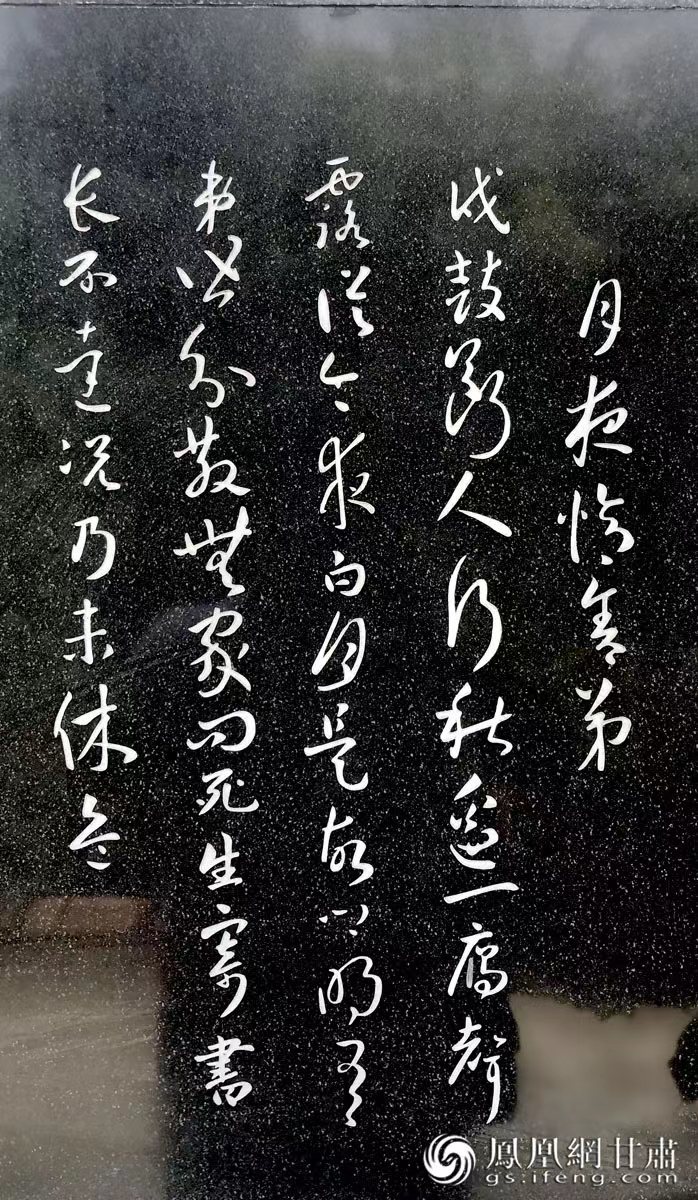 月夜憶舍弟
戍鼓斷人行秋邊一鴈聲
露從今夜白月是故鄉明有
弟皆分散無家問死生寄書
长不達况乃未休兵
鳳凰網甘肅
gs.ifeng.com